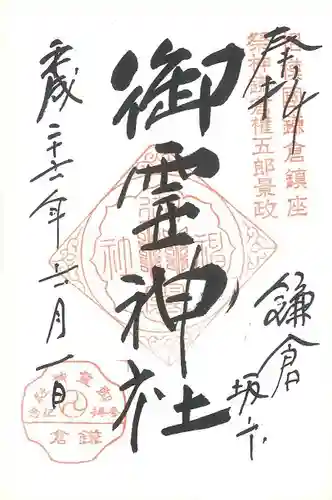 奉拝
相模國鎌倉鎮座
祭神鎌倉権五郎景政
鎌倉
坂ノ下
御霊神社
平成二十六年六月一日
鎌倉